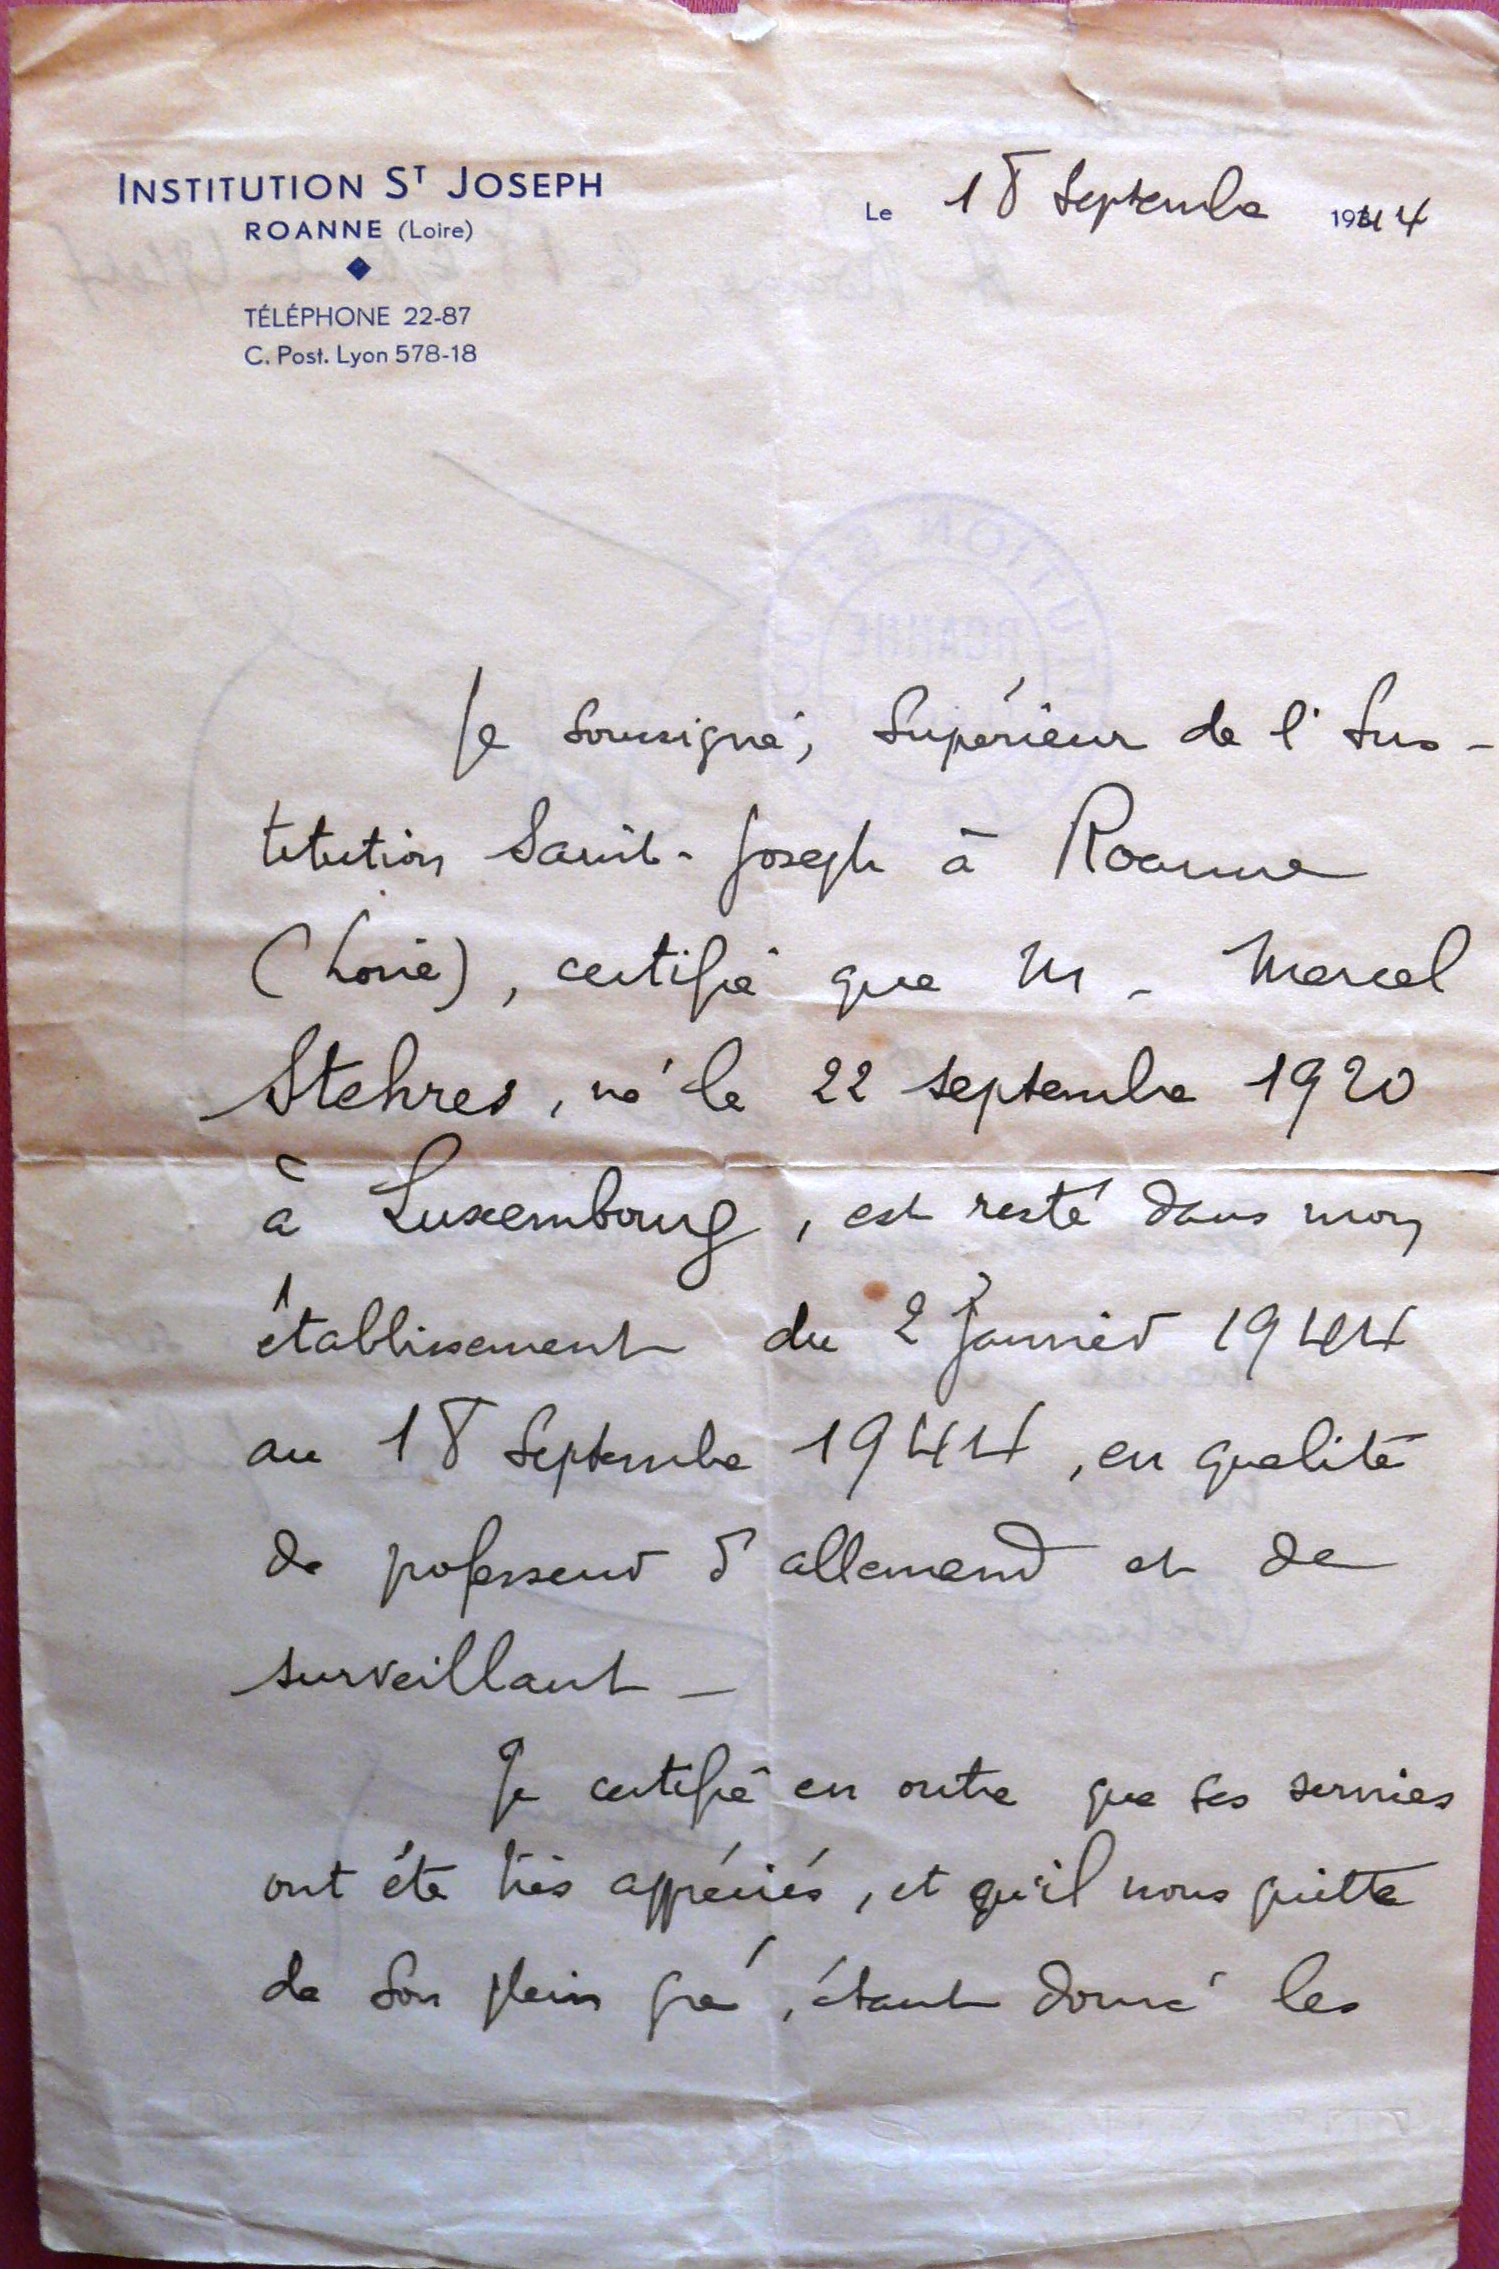 INSTITUTION ST JOSEPH
ROANNE (Loire)
TÉLÉPHONE 22-87
C. Post. Lyon 578-18
Le 18 Septembre 1944
Je soussigné, Supérieur de l'Ins-
titution Saint-Joseph à Roanne
(Loire), certifie que M. Marcel
Stehres, né le 22 septembre 1920
à Luxembourg, est resté dans mon
établissement du 2 Janvier 1944
au 18 Septembre 1944, en qualité
de professeur d'allemand et de
surveillant -
Je certifie en outre que ses services
ont été très appréciés, et qu'il nous quitte
de son plein gré, étant donné les